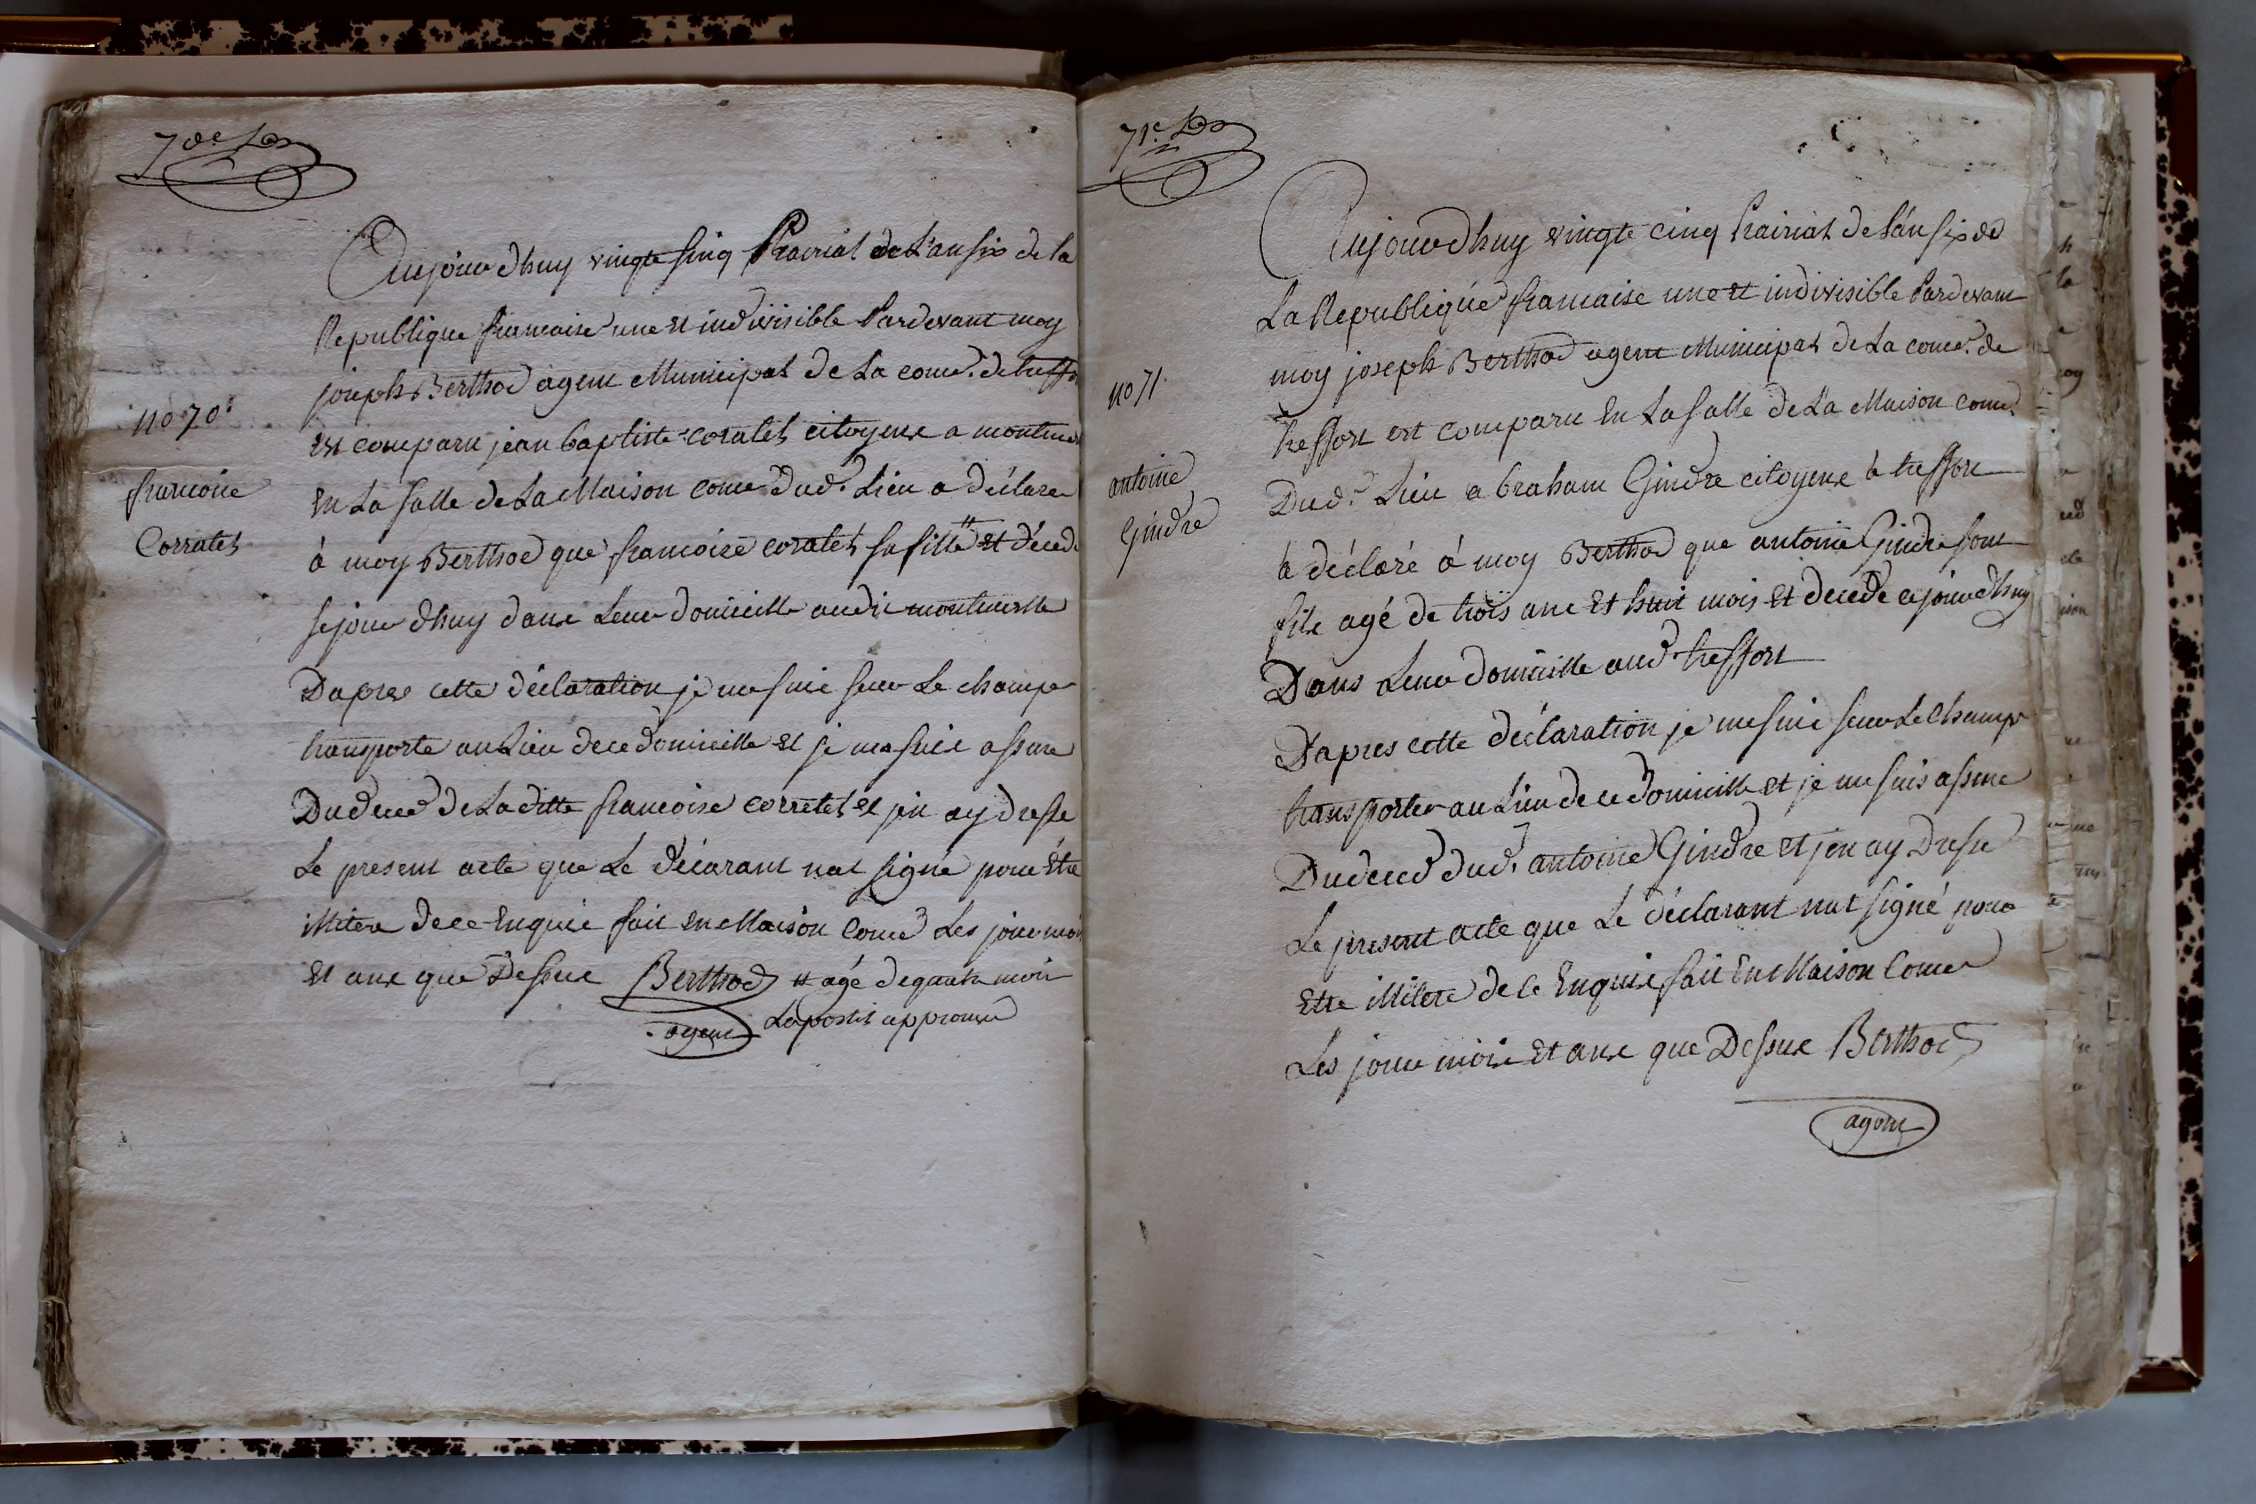 70e
Aujourdhuy vingte sinq Prairial de L'an six de la
Republique francaise une et indivisible Pardevant moy
joseph Berthod agent Municipal de La come. de treffo
no 70.
est comparu jean baptiste coralet citoyene a montme
francoise
En La salle de La Maison come dud. Lieu a déclare
Corralet
à moy Berthod que francoise coralet sa fille # et déced
sejour dhuy dans Leur domicille audit montmerlle
Dapres cette déclaration je me suie seur Le champ
transporte au Lieu de ce domicille et je me suis assure
Du deced de La ditte francoise corretet et jen ay dresse
Le present acte que Le décarant nat signé pour Etre
illitere de ce Enquie fait en Maison come Les jour moi
Et ans que Dessue Berthod # agé de quatre moir
agent Lapostit approuve
71e
Aujourdhuy vingte cinq Prairial de L'an six de
La Republique francaise une et indivisible Pardevant
moy joseph Berthod agent Municipal de La come. de
no 71.
treffort est comparu En La salle de La Maison come.
antoine
Dud. Lieu abraham Gindre citoyene à treffort
Gindre
à déclaré à moy Berthod que antoine Gindre sont
fils agé de trois ans Et huit mois Et decede ejourdhuy
Dans Leur domicille aud. treffort
Dapres cette déclaration je me suie seur Le champ
transporter au Lieu de ce domicille et je me suis assure
Du deced dud. antoine Gindre et jen ay Dresse
Le present acte que Le déclarant nat signé pour
Etre illitere de ce Enquie fait En Maison Come
Les jour mois Et ans que Dessus Berthod
agent